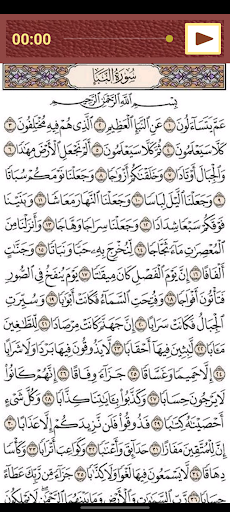 00:00
سُورَةُ النَّبَإِ
بِسْمِ اللَّهِ الرَّحْمَٰنِ الرَّحِيمِ
عَمَّ يَتَسَاءَلُونَ ١ عَنِ النَّبَإِ الْعَظِيمِ ٢ الَّذِي هُمْ فِيهِ مُخْتَلِفُونَ ٣
كَلَّا سَيَعْلَمُونَ ٤ ثُمَّ كَلَّا سَيَعْلَمُونَ ٥ أَلَمْ نَجْعَلِ الْأَرْضَ مِهَادًا ٦
وَالْجِبَالَ أَوْتَادًا ٧ وَخَلَقْنَاكُمْ أَزْوَاجًا ٨ وَجَعَلْنَا نَوْمَكُمْ سُبَاتًا
٩ وَجَعَلْنَا اللَّيْلَ لِبَاسًا ١٠ وَجَعَلْنَا النَّهَارَ مَعَاشًا ١١ وَبَنَيْنَا
فَوْقَكُمْ سَبْعًا شِدَادًا ١٢ وَجَعَلْنَا سِرَاجًا وَهَّاجًا ١٣ وَأَنْزَلْنَا مِنَ
الْمُعْصِرَاتِ مَاءً ثَجَّاجًا ١٤ لِنُخْرِجَ بِهِ حَبًّا وَنَبَاتًا ١٥ وَجَنَّاتٍ
أَلْفَافًا ١٦ إِنَّ يَوْمَ الْفَصْلِ كَانَ مِيقَاتًا ١٧ يَوْمَ يُنْفَخُ فِي الصُّورِ
فَتَأْتُونَ أَفْوَاجًا ١٨ وَفُتِحَتِ السَّمَاءُ فَكَانَتْ أَبْوَابًا ١٩ وَسُيِّرَتِ
الْجِبَالُ فَكَانَتْ سَرَابًا ٢٠ إِنَّ جَهَنَّمَ كَانَتْ مِرْصَادًا ٢١ لِلطَّاغِينَ
مَآبًا ٢٢ لَابِثِينَ فِيهَا أَحْقَابًا ٢٣ لَا يَذُوقُونَ فِيهَا بَرْدًا وَلَا شَرَابًا
٢٤ إِلَّا حَمِيمًا وَغَسَّاقًا ٢٥ جَزَاءً وِفَاقًا ٢٦ إِنَّهُمْ كَانُوا
لَا يَرْجُونَ حِسَابًا ٢٧ وَكَذَّبُوا بِآيَاتِنَا كِذَّابًا ٢٨ وَكُلَّ شَيْءٍ
أَحْصَيْنَاهُ كِتَابًا ٢٩ فَذُوقُوا فَلَنْ نَزِيدَكُمْ إِلَّا عَذَابًا ٣٠
إِنَّ لِلْمُتَّقِينَ مَفَازًا ٣١ حَدَائِقَ وَأَعْنَابًا ٣٢ وَكَوَاعِبَ أَتْرَابًا ٣٣ وَكَأْسًا
دِهَاقًا ٣٤ لَا يَسْمَعُونَ فِيهَا لَغْوًا وَلَا كِذَّابًا ٣٥ جَزَاءً مِنْ رَبِّكَ عَطَاءً